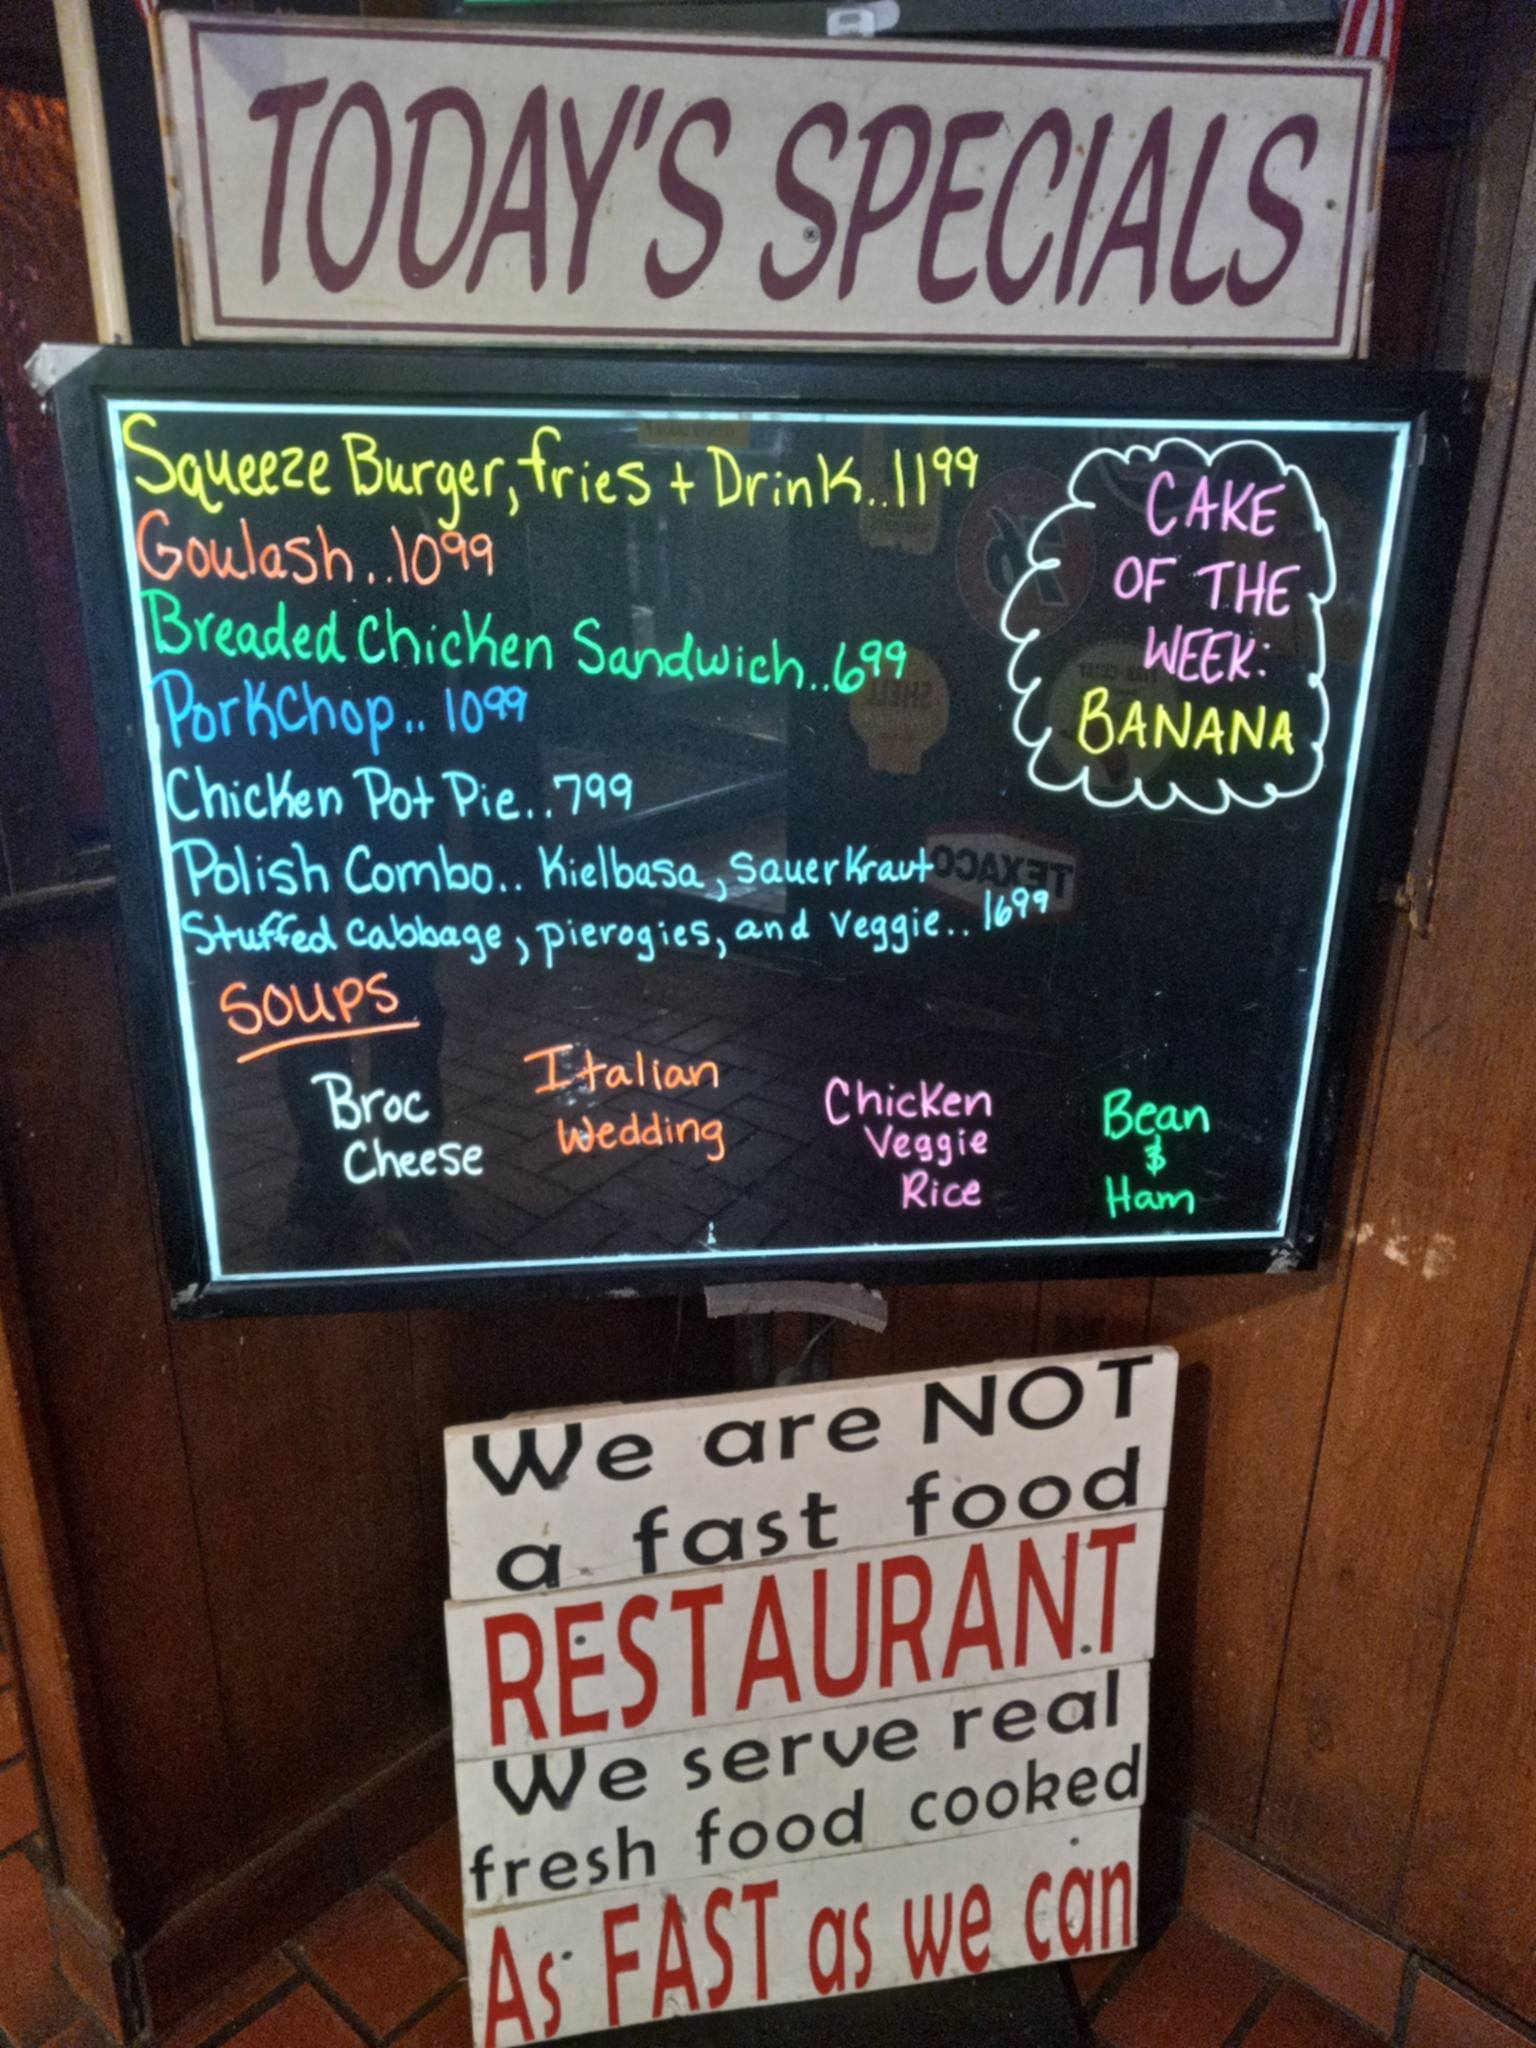 TODAY'S SPECIALS
Squeeze Burger, fries + Drink..11 99
Goulash..10 99
Breaded Chicken Sandwich..6 99
PorkChop..10 99
Chicken Pot Pie..7 99
Polish Combo.. Kielbasa, Sauerkraut
Stuffed Cabbage, pierogies, and Veggie..16 99
CAKE
OF THE
WEEK:
BANANA
SOUPS
Broc
Cheese
Italian
Wedding
Chicken
Veggie
Rice
Bean
&
Ham
TEXACO
SHELL
We are NOT
a fast food
RESTAURANT
We serve real
fresh food cooked
As FAST as we can